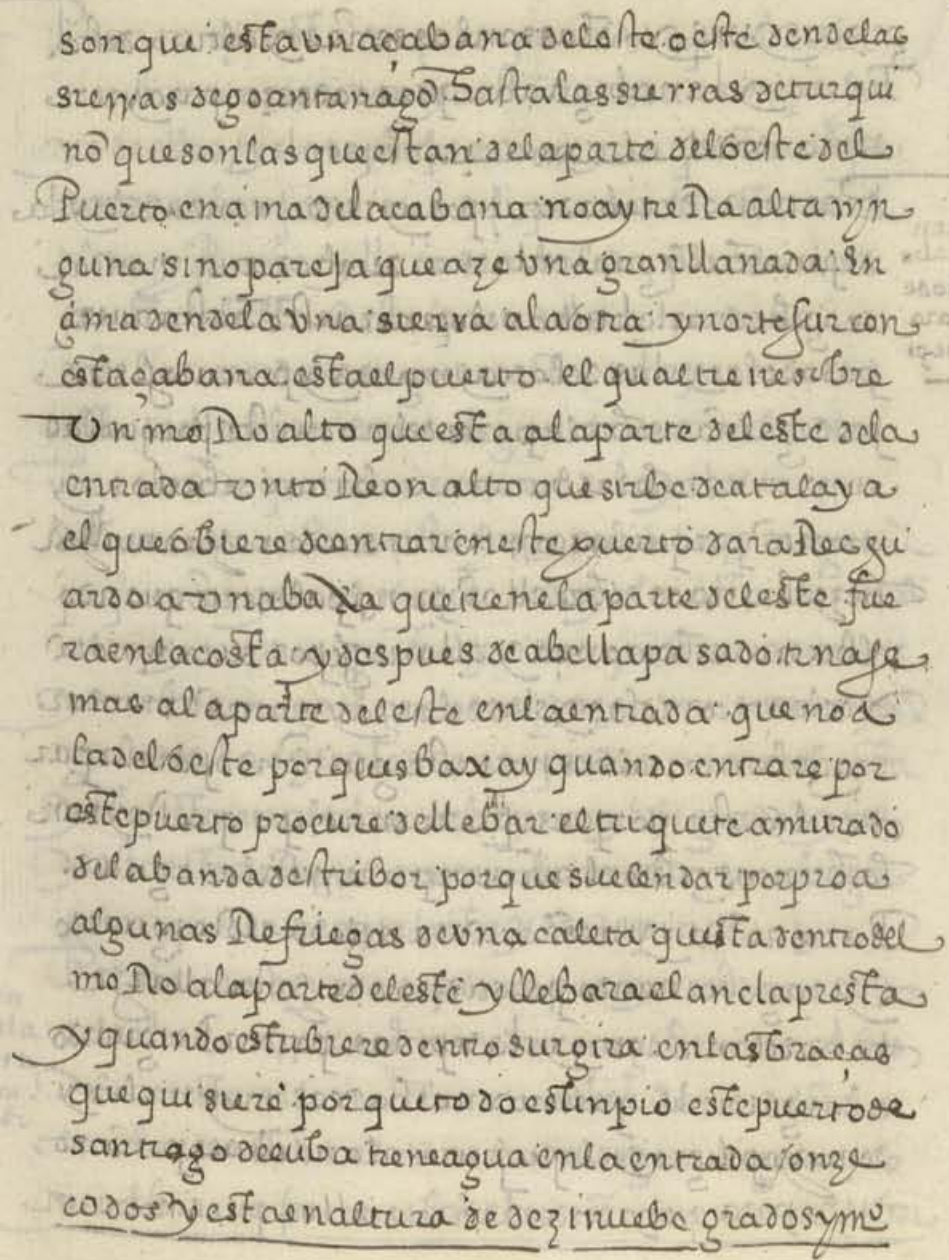 son qui esta vna çabana del oste oeste dendelas
sierras de goantanago hasta las sierras de turqui
no que son las que estan de la parte del oeste del
Puerto en çima de la çabana no ay tieRa alta nyn
guna sino pareja que aze vna gran llanada En
çima dende la vna sierra a la otra y norte sur con
esta çabana esta el puerto el qual tiene sobre
Vn moRo alto que esta a la parte del este de la
entrada vn toReon alto que sirbe de atalaya
el que obiere de entrar en este puerto dara Resgu
ardo a vna baXa que tiene la parte del este fue
ra en la costa y despues de abella pasado tengase
mas a la parte del este en la entrada que no a
la del oeste porques baxa y quando entrare por
este puerto procure de llebar el triquete amurado
de la banda destribor porque suelen dar por proa
algunas Refriegas de vna caleta questa dentro del
moRo a la parte del este y llebara el ancla presta
y quando estubiere dentro surgira en las braças
que quisiere porque todo es linpio este puerto de
santiago de cuba tiene agua en la entrada onze
codos y esta en altura de dezinuebe grados y mo